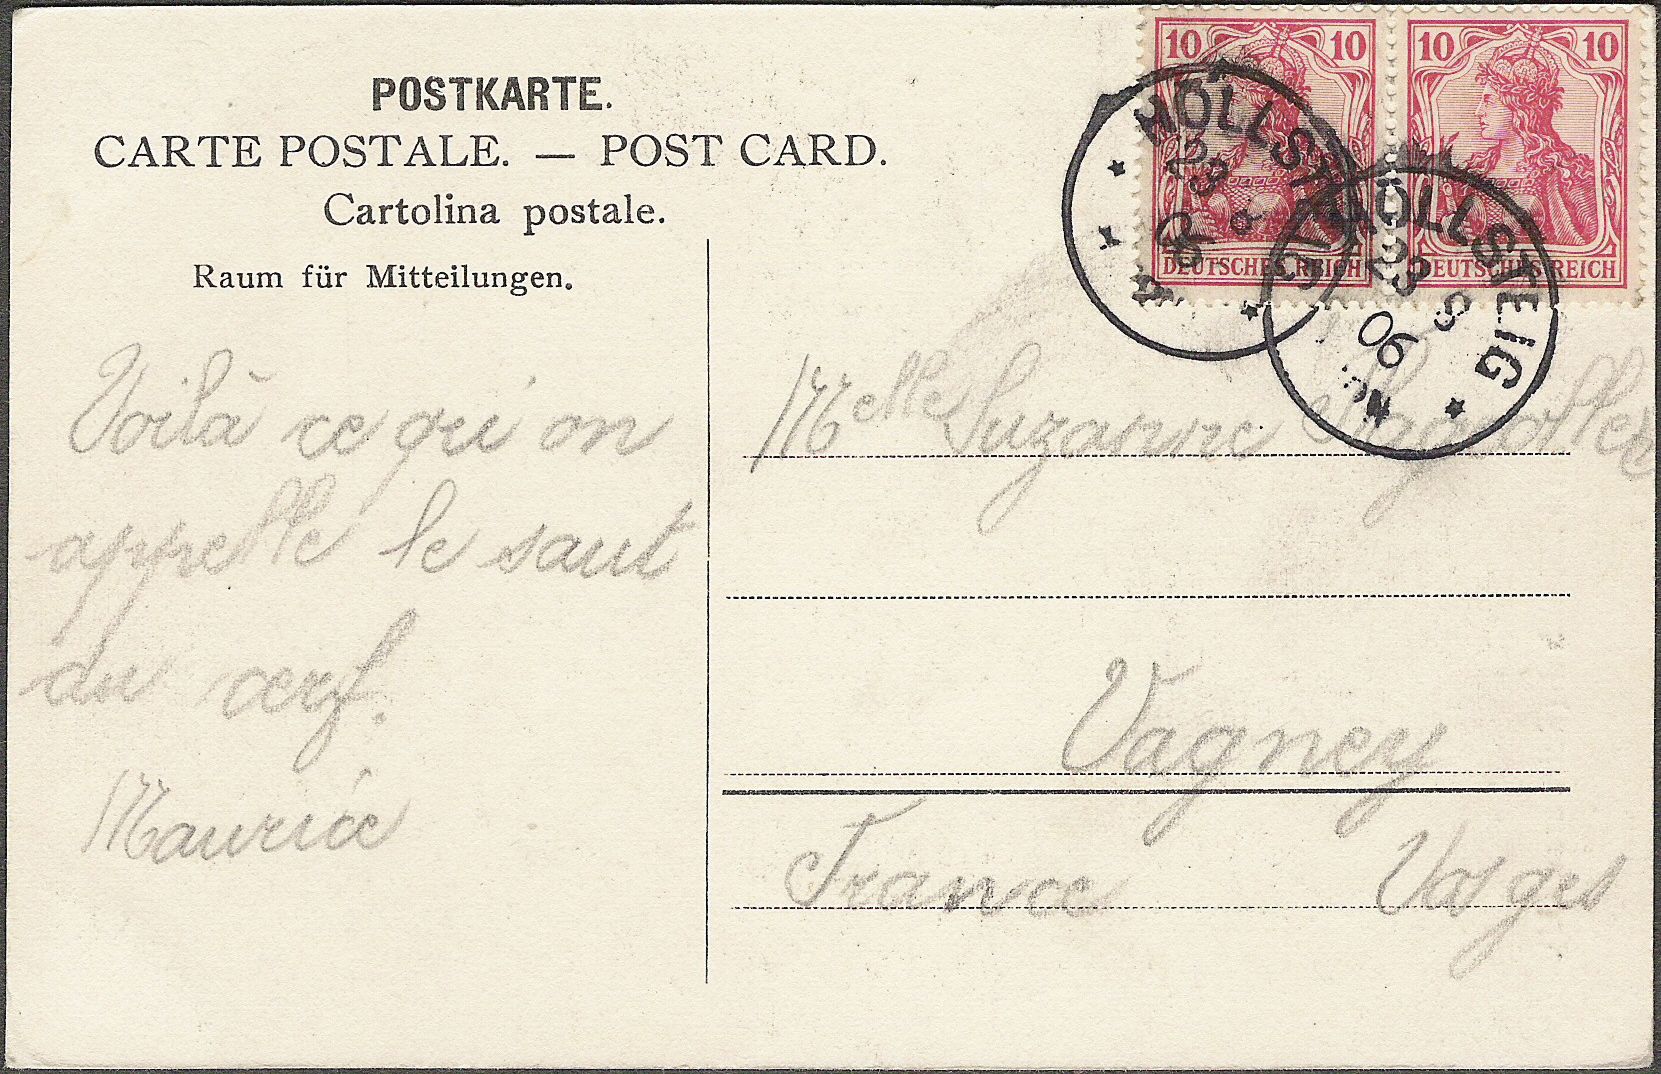 POSTKARTE.
CARTE POSTALE. — POST CARD.
Cartolina postale.
Raum für Mitteilungen.
10 10
DEUTSCHES REICH
10 10
DEUTSCHES REICH
HÖLLSTEIG
23
06
HÖLLSTEIG
23 8
06
Voilà ce qui on
appelle le saut
du cerf.
Maurice
Melle Suzanne
Vagney
France Vosges